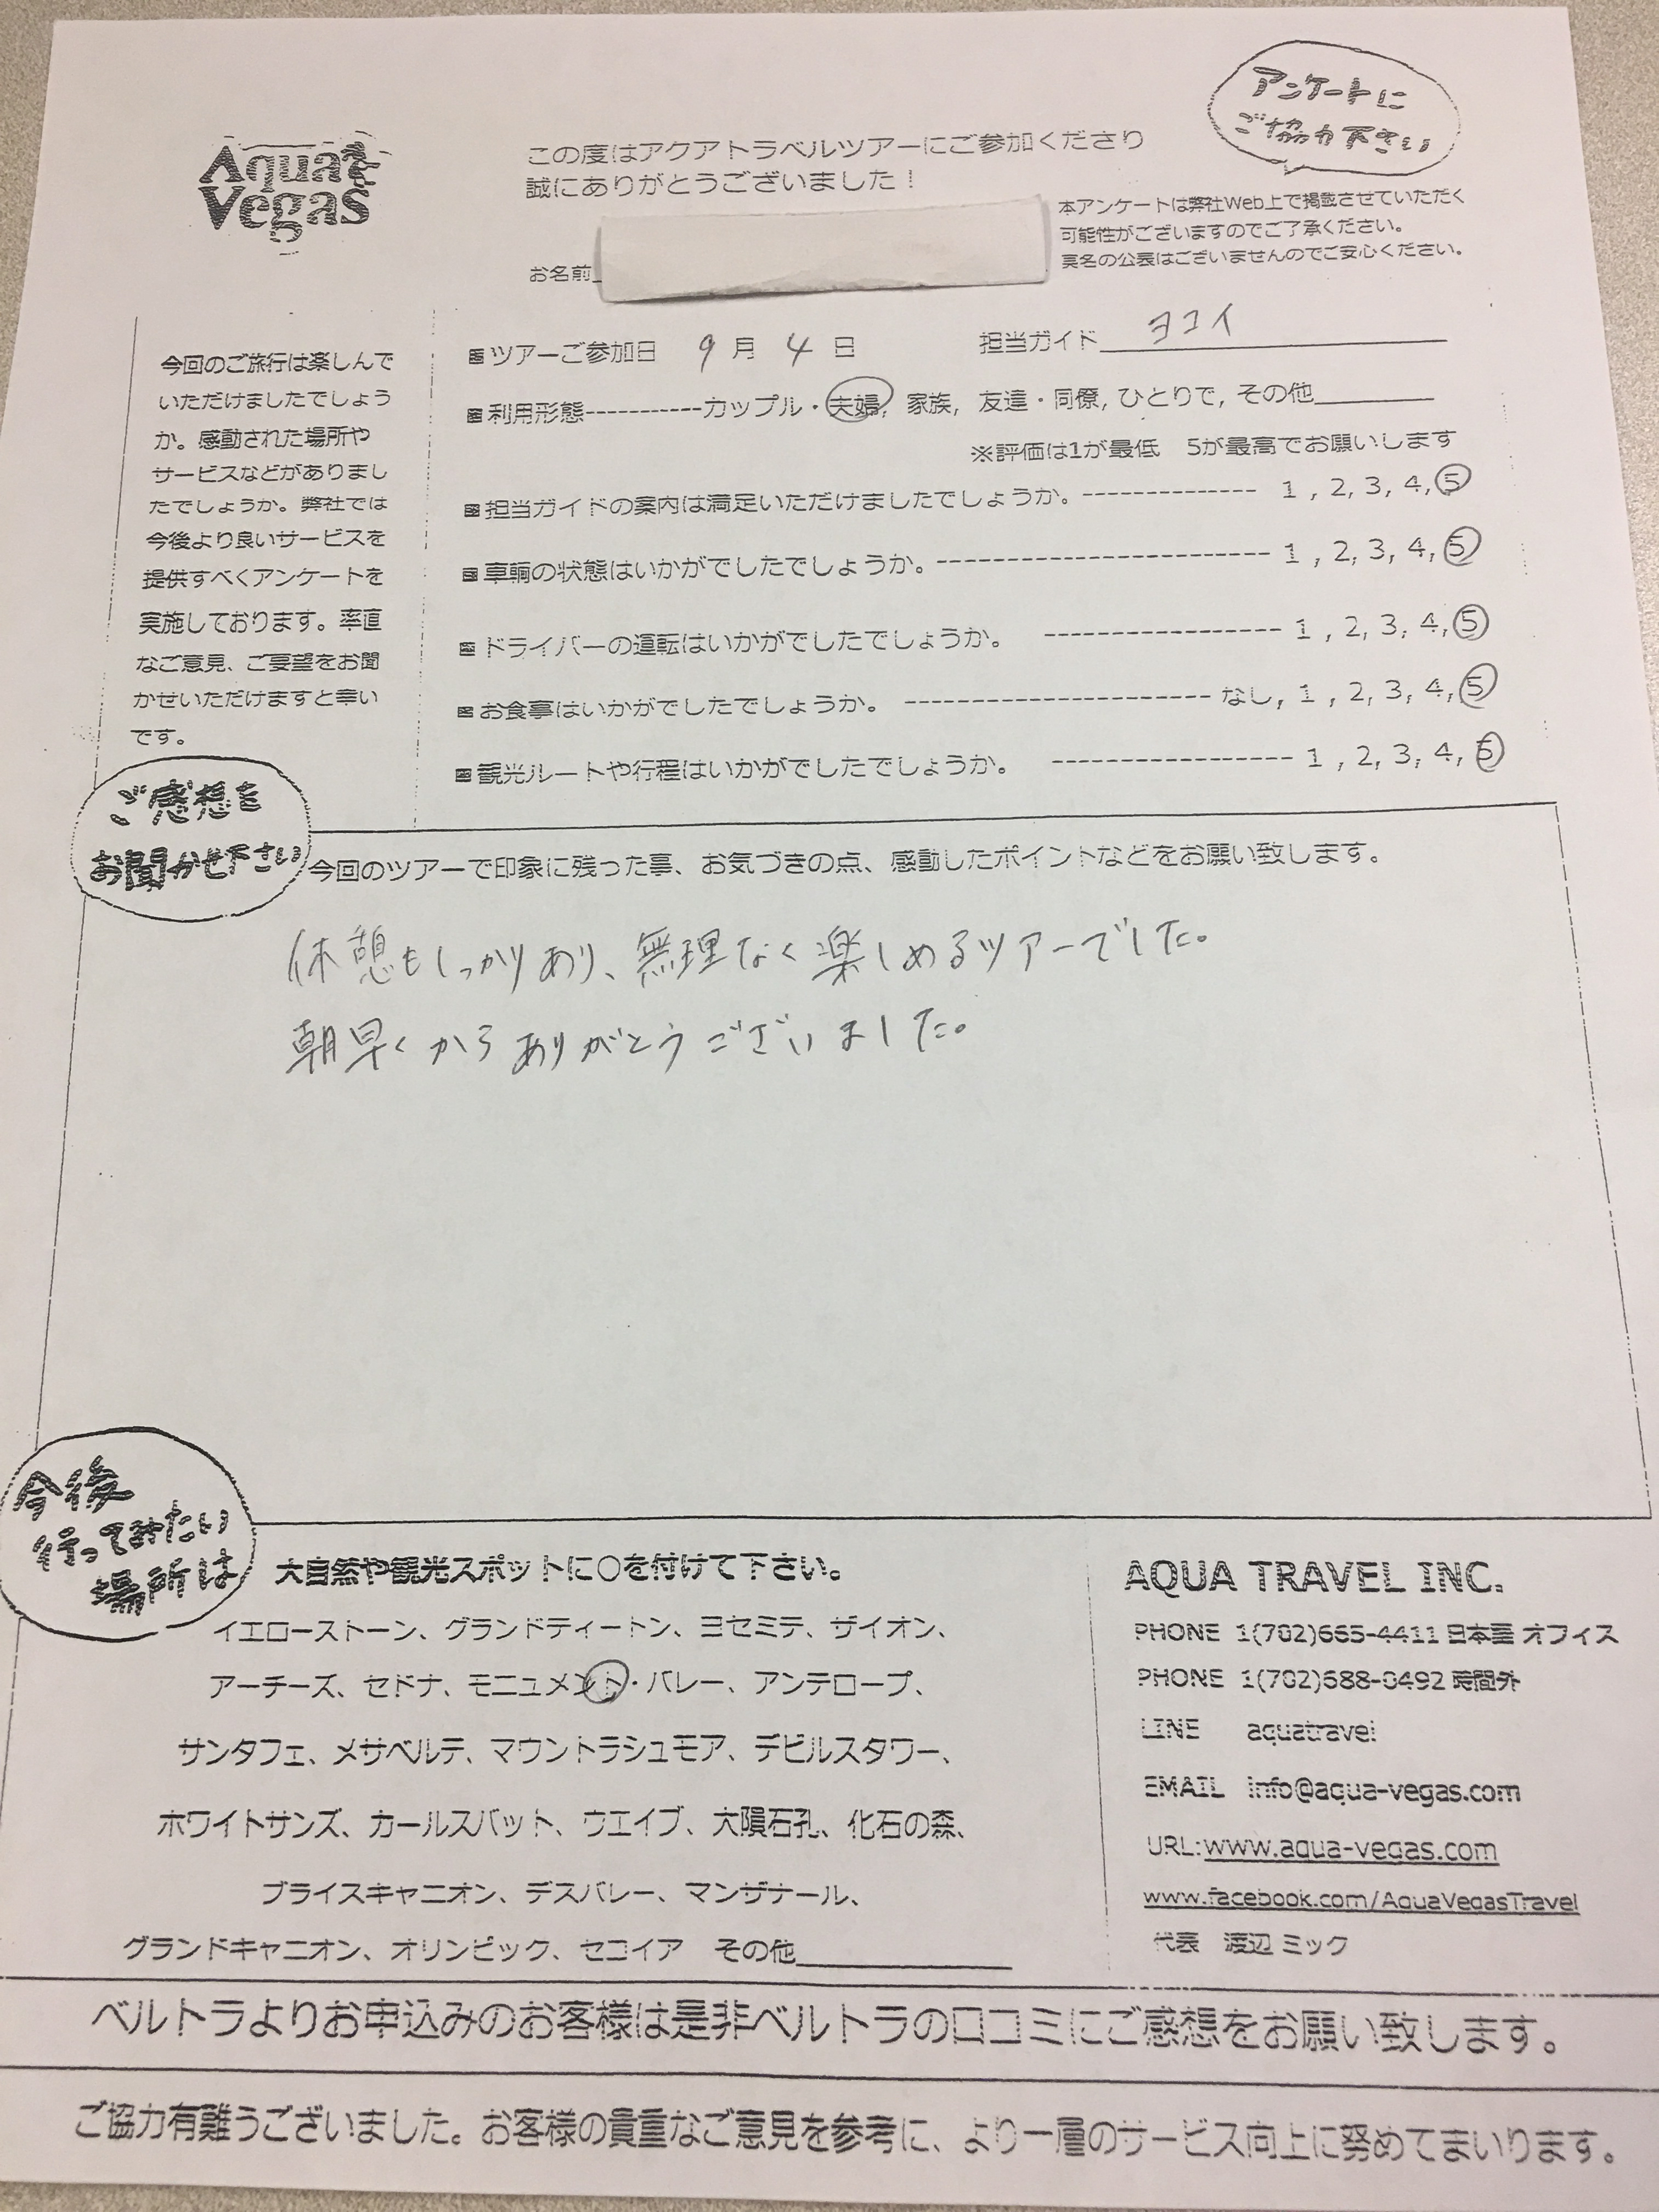 Aqua
Vegas
この度はアクアトラベルツアーにご参加くださり
誠にありがとうございました！
アンケートに
ご協力下さい
本アンケートは弊社Web上で掲載させていただく
可能性がございますのでご了承ください。
実名の公表はございませんのでご安心ください。
お名前
今回のご旅行は楽しんで
いただけましたでしょう
か。感動された場所や
サービスなどがありまし
たでしょうか。弊社では
今後より良いサービスを
提供すべくアンケートを
実施しております。率直
なご意見、ご要望をお聞
かせいただけますと幸い
です。
ツアーご参加日 9 月 4 日 担当ガイド ヨコイ
利用形態-----------カップル・夫婦, 家族, 友達・同僚, ひとりで, その他
※評価は1が最低 5が最高でお願いします
担当ガイドの案内は満足いただけましたでしょうか。-------------- 1 , 2, 3, 4, 5
車輌の状態はいかがでしたでしょうか。--------------------------- 1 , 2, 3, 4, 5
ドライバーの運転はいかがでしたでしょうか。 ------------------- 1 , 2, 3, 4, 5
お食事はいかがでしたでしょうか。 ------------------------ なし, 1 , 2, 3, 4, 5
観光ルートや行程はいかがでしたでしょうか。 ------------------- 1 , 2, 3, 4, 5
ご感想を
お聞かせ下さい
今回のツアーで印象に残った事、お気づきの点、感動したポイントなどをお願い致します。
休憩もしっかりあり、無理なく楽しめるツアーでした。
朝早くからありがとうございました。
今後
行ってみたい
場所は
大自然や観光スポットに○を付けて下さい。
イエローストーン、グランドティートン、ヨセミテ、ザイオン、
アーチーズ、セドナ、モニュメント・バレー、アンテロープ、
サンタフェ、メサベルテ、マウントラシュモア、デビルスタワー、
ホワイトサンズ、カールスバット、ウエイブ、大隕石孔、化石の森、
ブライスキャニオン、デスバレー、マンザナール、
グランドキャニオン、オリンピック、セコイア その他
AQUA TRAVEL INC.
PHONE 1(702)665-4411 日本語 オフィス
PHONE 1(702)688-0492 時間外
LINE aquatravel
EMAIL info@aqua-vegas.com
URL:www.aqua-vegas.com
www.facebook.com/AquaVegasTravel
代表 渡辺 ミック
ベルトラよりお申込みのお客様は是非ベルトラの口コミにご感想をお願い致します。
ご協力有難うございました。お客様の貴重なご意見を参考に、より一層のサービス向上に努めてまいります。